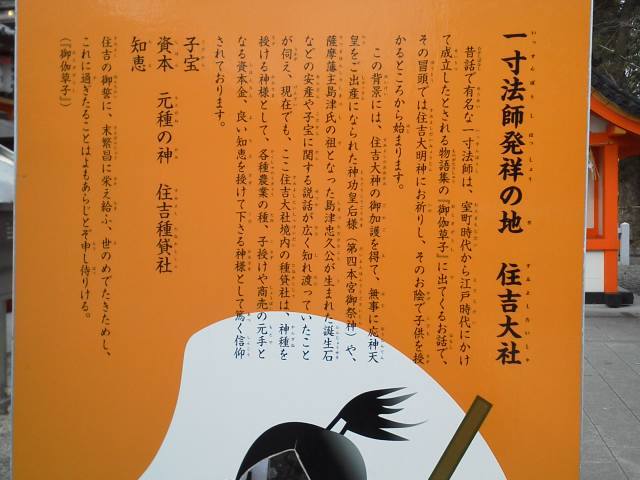 一寸法師発祥の地 住吉大社
昔話で有名な一寸法師は、室町時代から江戸時代にかけ
て成立したとされる物語集の『御伽草子』に出てくるお話で、
その冒頭では住吉大明神にお祈りし、そのお陰で子供を授
かるところから始まります。
この背景には、住吉大神の御加護を得て、無事に応神天
皇をご出産になられた神功皇后様（第四本宮御祭神）や、
薩摩藩主島津氏の祖となった島津忠久公が生まれた誕生石
などの安産や子宝に関する説話が広く知れ渡っていたこと
が伺え、現在でも、ここ住吉大社境内の種貸社は、神種を
授ける神様として、各種農業の種、子授けや商売の元手と
なる資本金、良い知恵を授けて下さる神様として篤く信仰
されております。
子宝
資本 元種の神 住吉種貸社
知恵
住吉の御誓に、末繁昌に栄え給ふ、世のめでたきためし、
これに過ぎたることはよもあらじとぞ申し侍りける。
（『御伽草子』）